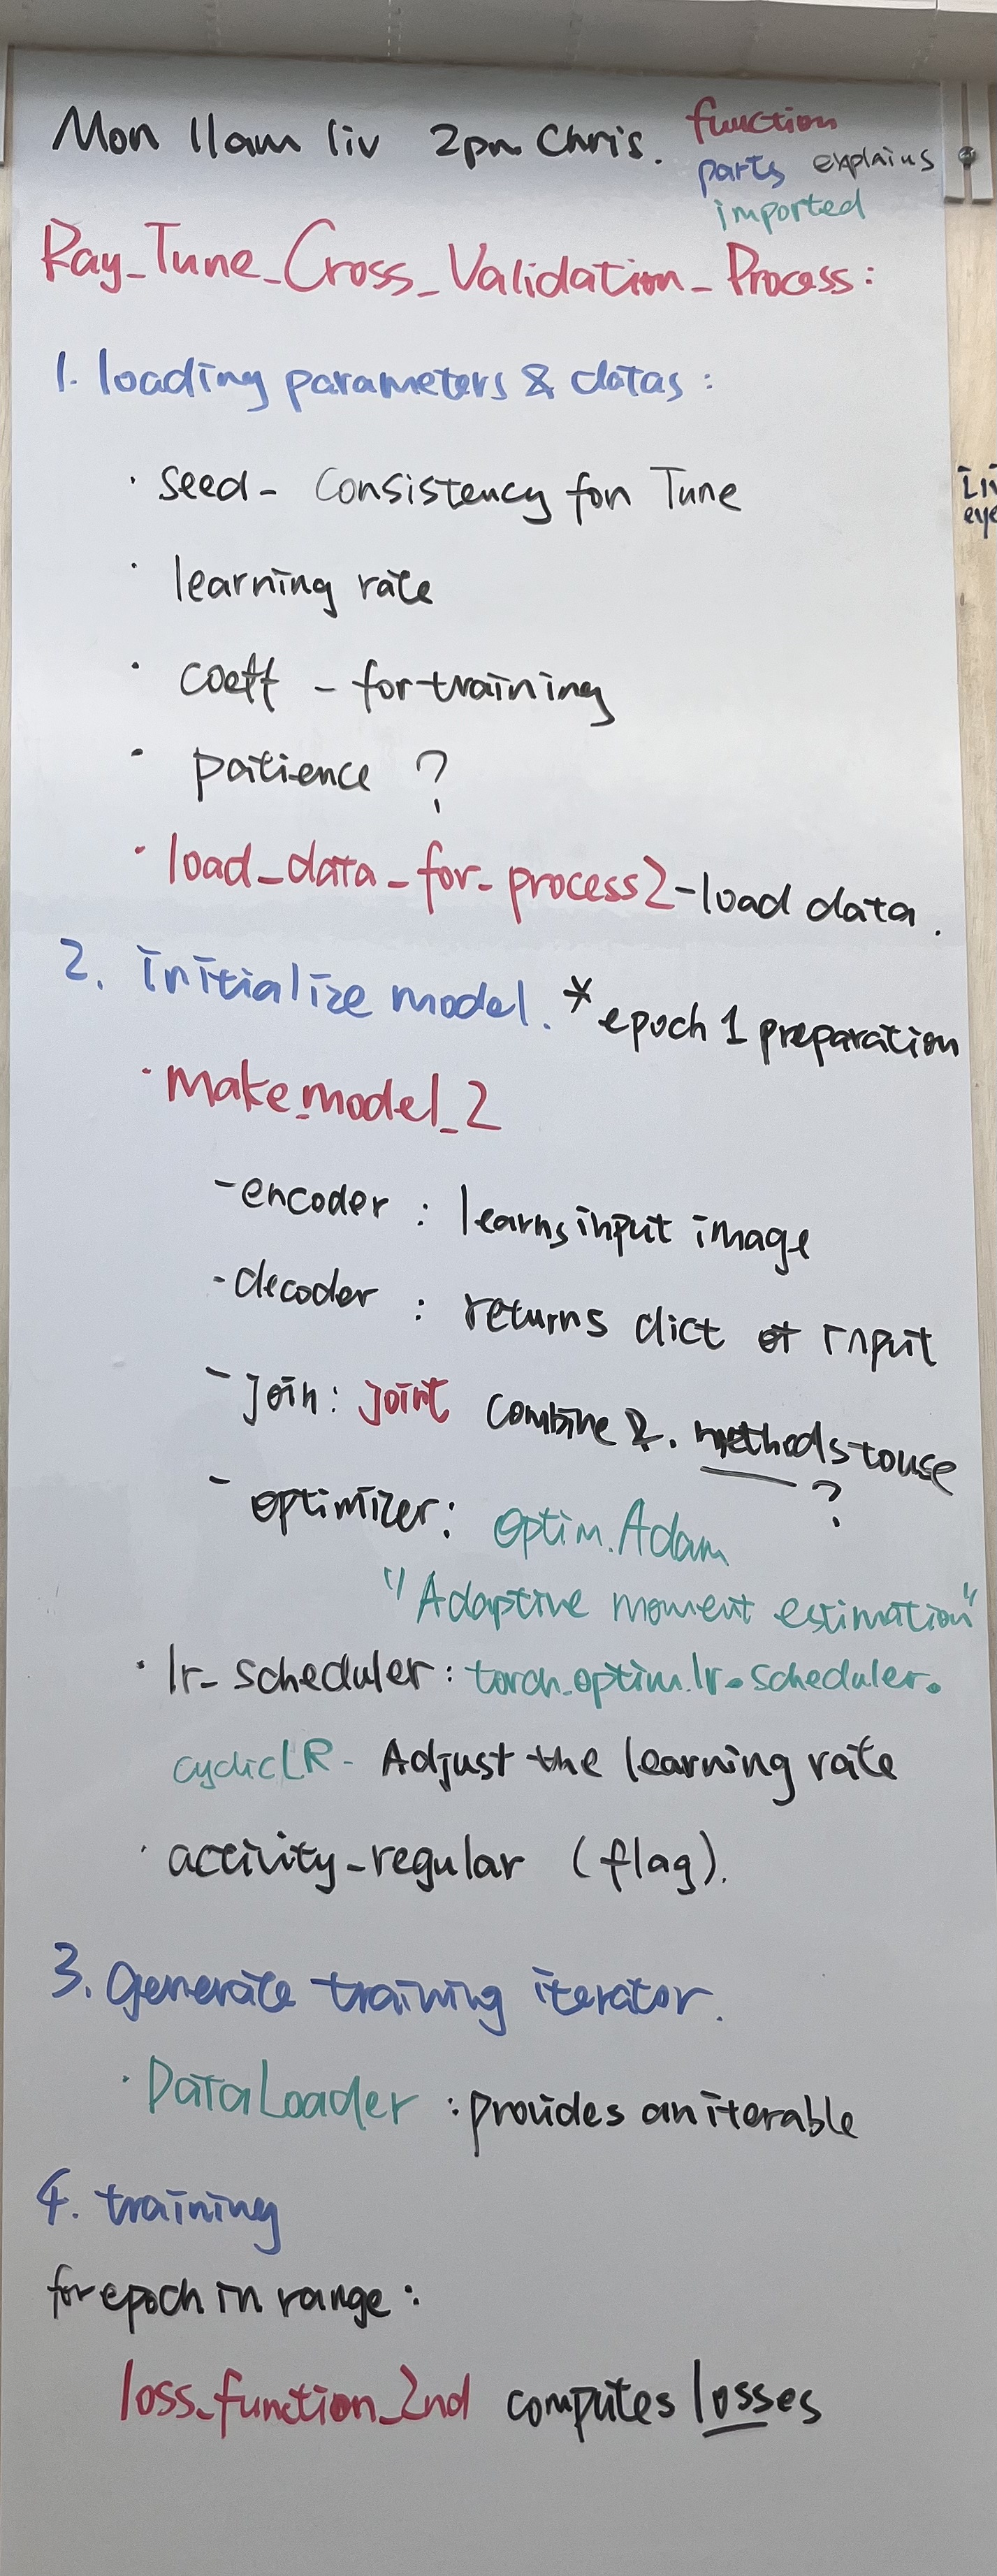 Mon 11am liv 2pm Chris.
function
parts explains
imported
Ray_Tune_Cross_Validation_Process:
1. loading parameters & datas:
· seed - consistency for Tune
· learning rate
· coeff - for training
· patience ?
· load_data_for_process2 - load data.
2. initialize model. * epoch 1 preparation
· make_model_2
- encoder : learns input image
- decoder : returns dict of input
- join: joint combine 2. methods to use
?
- optimizer: optim.Adam
"Adaptive moment estimation"
· lr_scheduler: torch.optim.lr_scheduler.
cyclicLR - Adjust the learning rate
· activity_regular (flag).
3. Generate training iterator.
· DataLoader : provides an iterable
4. training
for epoch in range:
loss_function_2nd computes losses
Li
eye